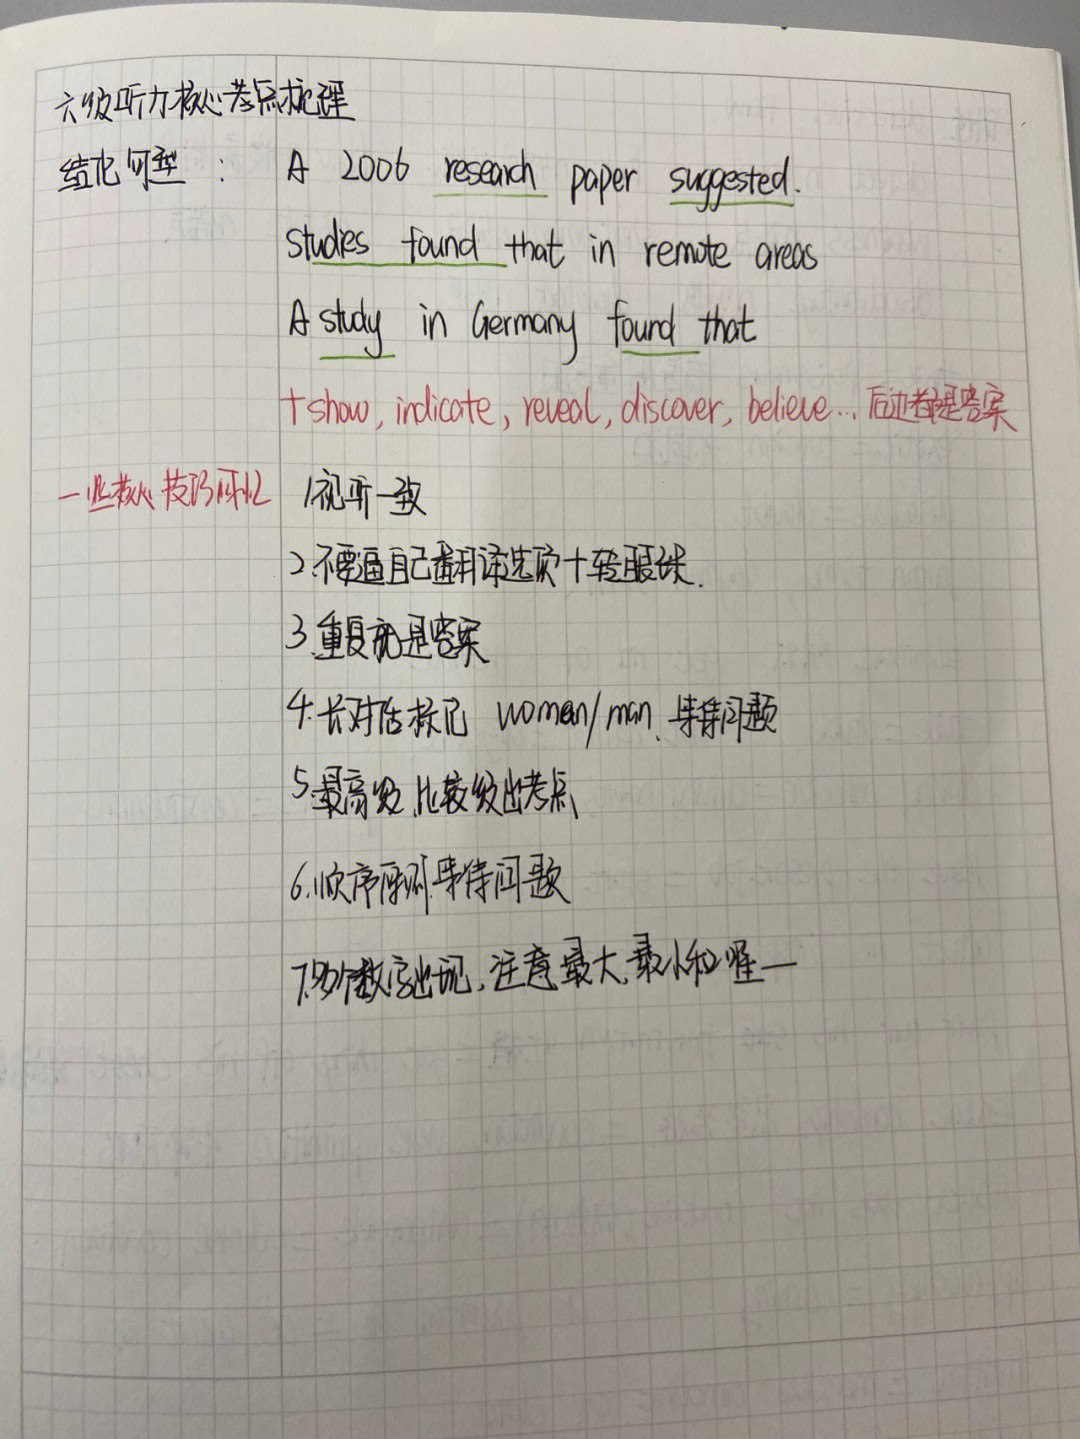 六级听力核心考点梳理
结论句型： A 2006 research paper suggested.
studies found that in remote areas
A study in Germany found that
+show, indicate, reveal, discover, believe... 后边都是答案
一些核心技巧 1.视听一致
2.不要逼自己翻译选项+转眼球.
3.重复就是答案
4.长对话标记 woman/man、等待问题
5.最高级、比较级出考点
6.顺序原则.等待问题
7.多个数字出现,注意最大、最小和唯一